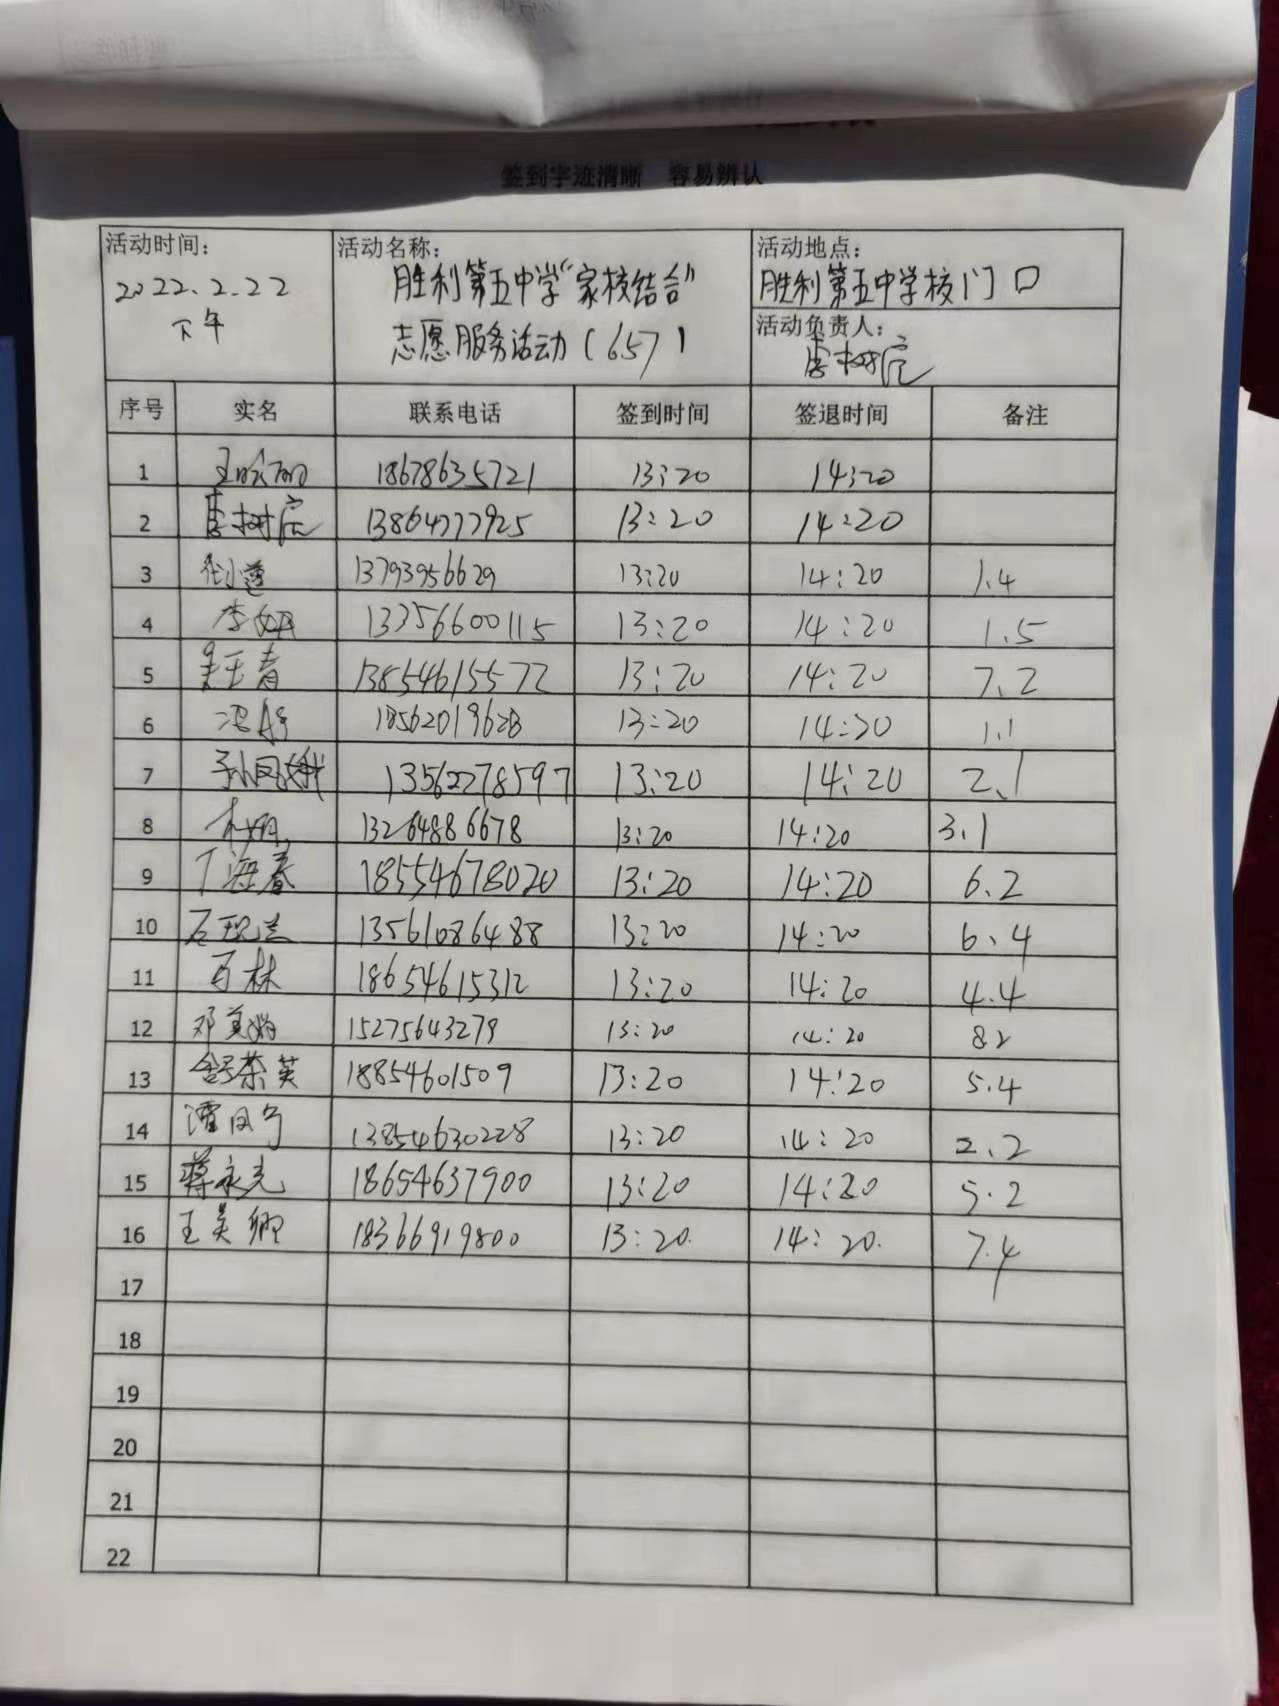 签到字迹清晰 容易辨认
活动时间:
2022.2.22
下午
活动名称:
胜利第五中学"家校结合"
志愿服务活动(657)
活动地点:
胜利第五中学校门口
活动负责人:
序号 实名 联系电话 签到时间 签退时间 备注
1 18678635721 13:20 14:20
2 13:20 14:20
3 13793956629 13:20 14:20 1.4
4 13356600115 13:20 14:20 1.5
5 13854615572 13:20 14:20 7.2
6 18562019628 13:20 14:20 1.1
7 孙凤娥 13562278597 13:20 14:20 2.1
8 13264886678 13:20 14:20 3.1
9 丁海春 18554678020 13:20 14:20 6.2
10 13561086488 13:20 14:20 6.4
11 18654615312 13:20 14:20 4.4
12 15275643279 13:20 14:20 82
13 18854601509 13:20 14:20 5.4
14 13854630228 13:20 14:20 2.2
15 蒋永光 18654637900 13:20 14:20 5.2
16 王美卿 18366919800 13:20. 14:20. 7.4
17
18
19
20
21
22